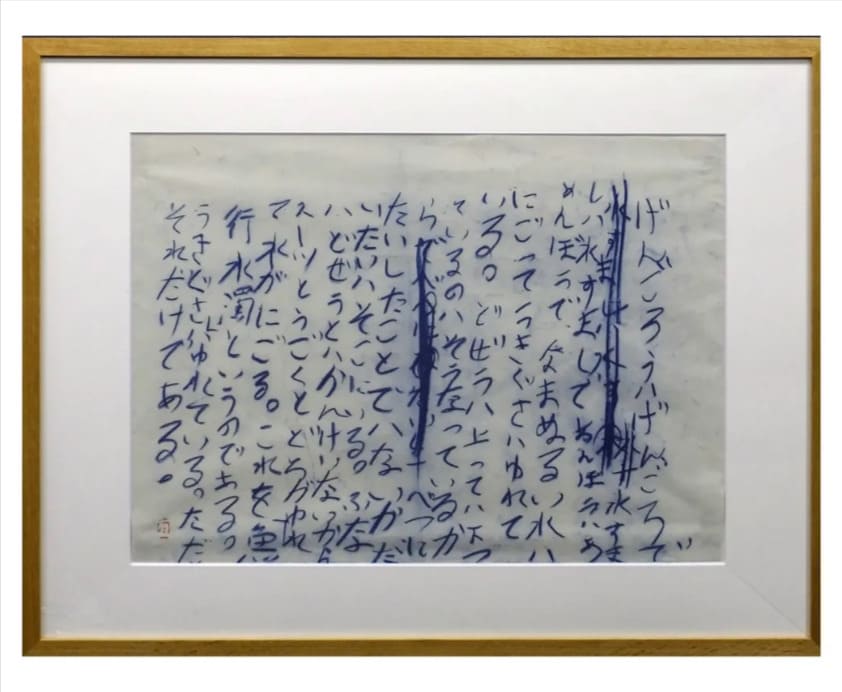 げんごろうハげんごろうで
水すま
しハ水すましであめんぼうハあ
めんぼうで なまぬるい水ハ
にごってうきぐさハゆれて
いる。どぜうハ上ってハ下っ
ているのハそうなっているか
らで べつに
たいしたことでハないがだ
いたいハそこにいる。ふな
ハどぜうとハかんけいないから
スーツとうごくとどろがゆれ
て水がにごる。これを魚
行水濁というのである。
うきぐさハゆれている。ただ
それだけである。